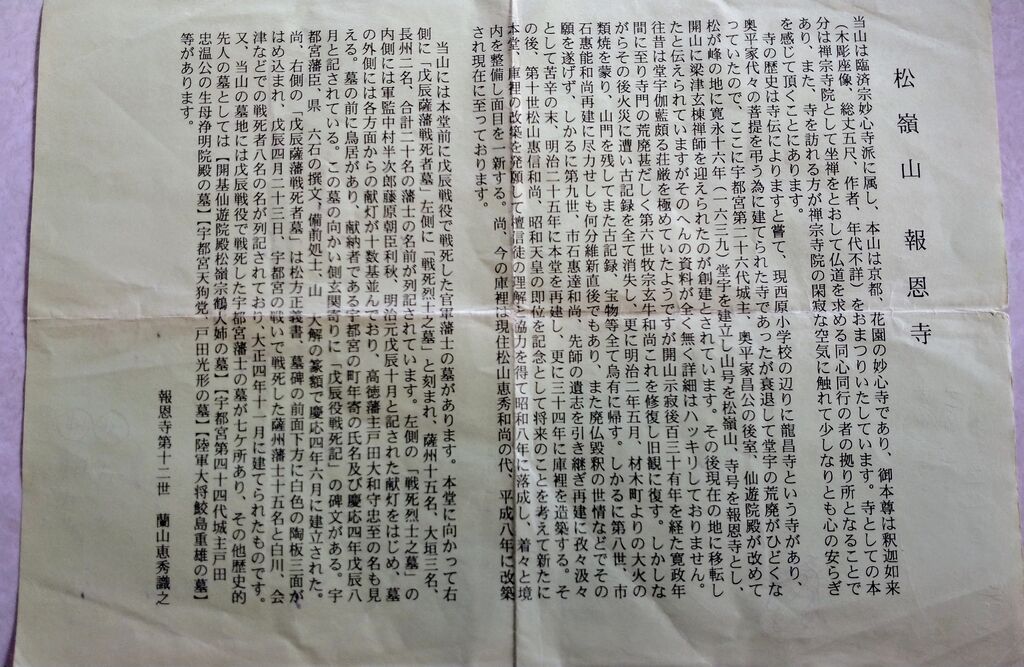 松嶺山報恩寺
当山は臨済宗妙心寺派に属し、本山は京都、花園の妙心寺であり、御本尊は釈迦如来
（木彫座像、総丈五尺、作者、年代不詳）をおまつりいたしています。寺としての本
分は禅宗寺院として坐禅をとおして仏道を求める同心同行の者の拠り所となることで
あり、また、寺を訪れる方が禅宗寺院の閑寂な空気に触れて少しなりとも心の安らぎ
を感じて頂くことにあります。
寺の歴史は寺伝によりますと嘗て、現西原小学校の辺りに龍昌寺という寺があり、
奥平家代々の菩提を弔う為に建てられた寺であったが衰退して堂宇の荒廃がひどくな
っていたので、ここに宇都宮第二十六代城主、奥平家昌公の後室、仙遊院殿が改めて
松が峰の地に寛永十六年（一六三九）堂宇を建立し山号を松嶺山、寺号を報恩寺とし、
開山に梁津玄棟禅師を迎えられたのが創建とされています。その後現在の地に移転し
たと伝えられていますがそのへんの資料が全く無く詳細はハッキリしておりません。
往昔は堂宇伽藍頗る荘厳を極めていたようですが開山示寂後百三十有年を経た寛政年
間に至り寺門の荒廃甚だしく第六世牧宗玄牛和尚これを修復し旧観に復す。しかしな
がらその後火災に遭い古記録を全て消失し、更に明治二年五月、材木町よりの大火の
類焼を蒙り、山門を残してまた古記録、宝物等全て烏有に帰す。しかるに第八世、市
石惠能和尚再建に尽力せしも何分維新直後でもあり、また廃仏毀釈の世情などでその
願を遂げず、しかるに第九世、市石惠達和尚、先師の遺志を引き継ぎ再建に孜々汲々
として苦辛の末、明治二十五年に本堂を再建し、更に三十四年に庫裡を造築する。そ
の後、第十世松山惠信和尚、昭和天皇の即位を記念として将来のことを考えて新たに
本堂、庫裡の改築を発願して檀信徒の理解と協力を得て昭和八年に落成し、着々と境
内を整備し面目を一新する。尚、今の庫裡は現住松山恵秀和尚の代、平成八年に改築
され現在に至っております。
当山には本堂前に戊辰戦役で戦死した官軍藩士の墓があります。本堂に向かって右
側に「戊辰薩藩戦死者墓」左側に「戦死烈士之墓」と刻まれ、薩州十五名、大垣三名、
長州二名、合計二十名の藩士の名前が列記されています。左側の「戦死烈士之墓」の
内側には軍監中村半次郎藤原朝臣利秋、明治元戊辰十月と記された献灯をはじめ、墓
の外側には各方面からの献灯が十数基並んでおり、高徳藩主戸田大和守忠至の名も見
える。墓の前に鳥居があり、献納者である宇都宮の町年寄の氏名及び慶応四年戊辰八
月と記されている。この墓の向かい側玄関寄りに「戊辰役戦死記」の碑文がある。宇
都宮藩臣、県　六石の撰文、備前処士、山　大解の篆額で慶応四年六月に建立された。
尚、右側の「戊辰薩藩戦死者墓」は松方正義書、墓碑の前面下方に白色の陶板三面が
はめ込まれ、戊辰四月二十三日、宇都宮の戦いで戦死した薩州藩士十五名と白川、会
津などでの戦死者八名の名が列記されており、大正四年十一月に建てられたものです。
又、当山の墓地には戊辰戦役で戦死した宇都宮藩士の墓が七ケ所あり、その他歴史的
先人の墓としては【開基仙遊院殿松嶺宗鶴大姉の墓】【宇都宮第四十四代城主戸田
忠温公の生母浄明院殿の墓】【宇都宮天狗党、戸田光形の墓】【陸軍大将鮫島重雄の墓】
等があります。
報恩寺第十二世　蘭山恵秀識之